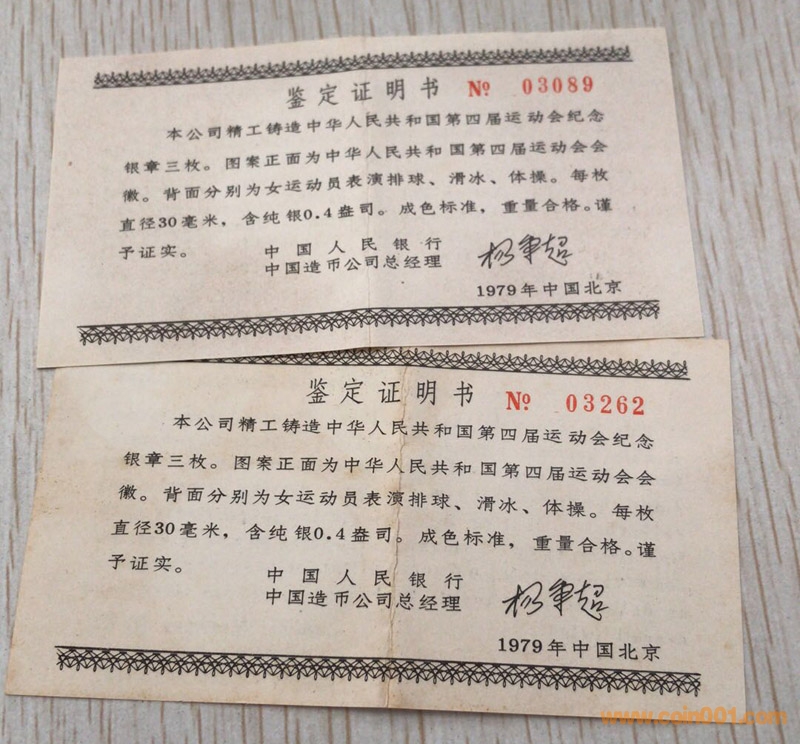 鉴定证明书 № 03089
本公司精工铸造中华人民共和国第四届运动会纪念
银章三枚。图案正面为中华人民共和国第四届运动会会
徽。背面分别为女运动员表演排球、滑冰、体操。每枚
直径30毫米，含纯银0.4盎司。成色标准，重量合格。谨
予证实。
中国人民银行
中国造币公司总经理 杨秉超
1979年中国北京
鉴定证明书 № 03262
本公司精工铸造中华人民共和国第四届运动会纪念
银章三枚。图案正面为中华人民共和国第四届运动会会
徽。背面分别为女运动员表演排球、滑冰、体操。每枚
直径30毫米，含纯银0.4盎司。成色标准，重量合格。谨
予证实。
中国人民银行
中国造币公司总经理 杨秉超
1979年中国北京
www.coin001.com